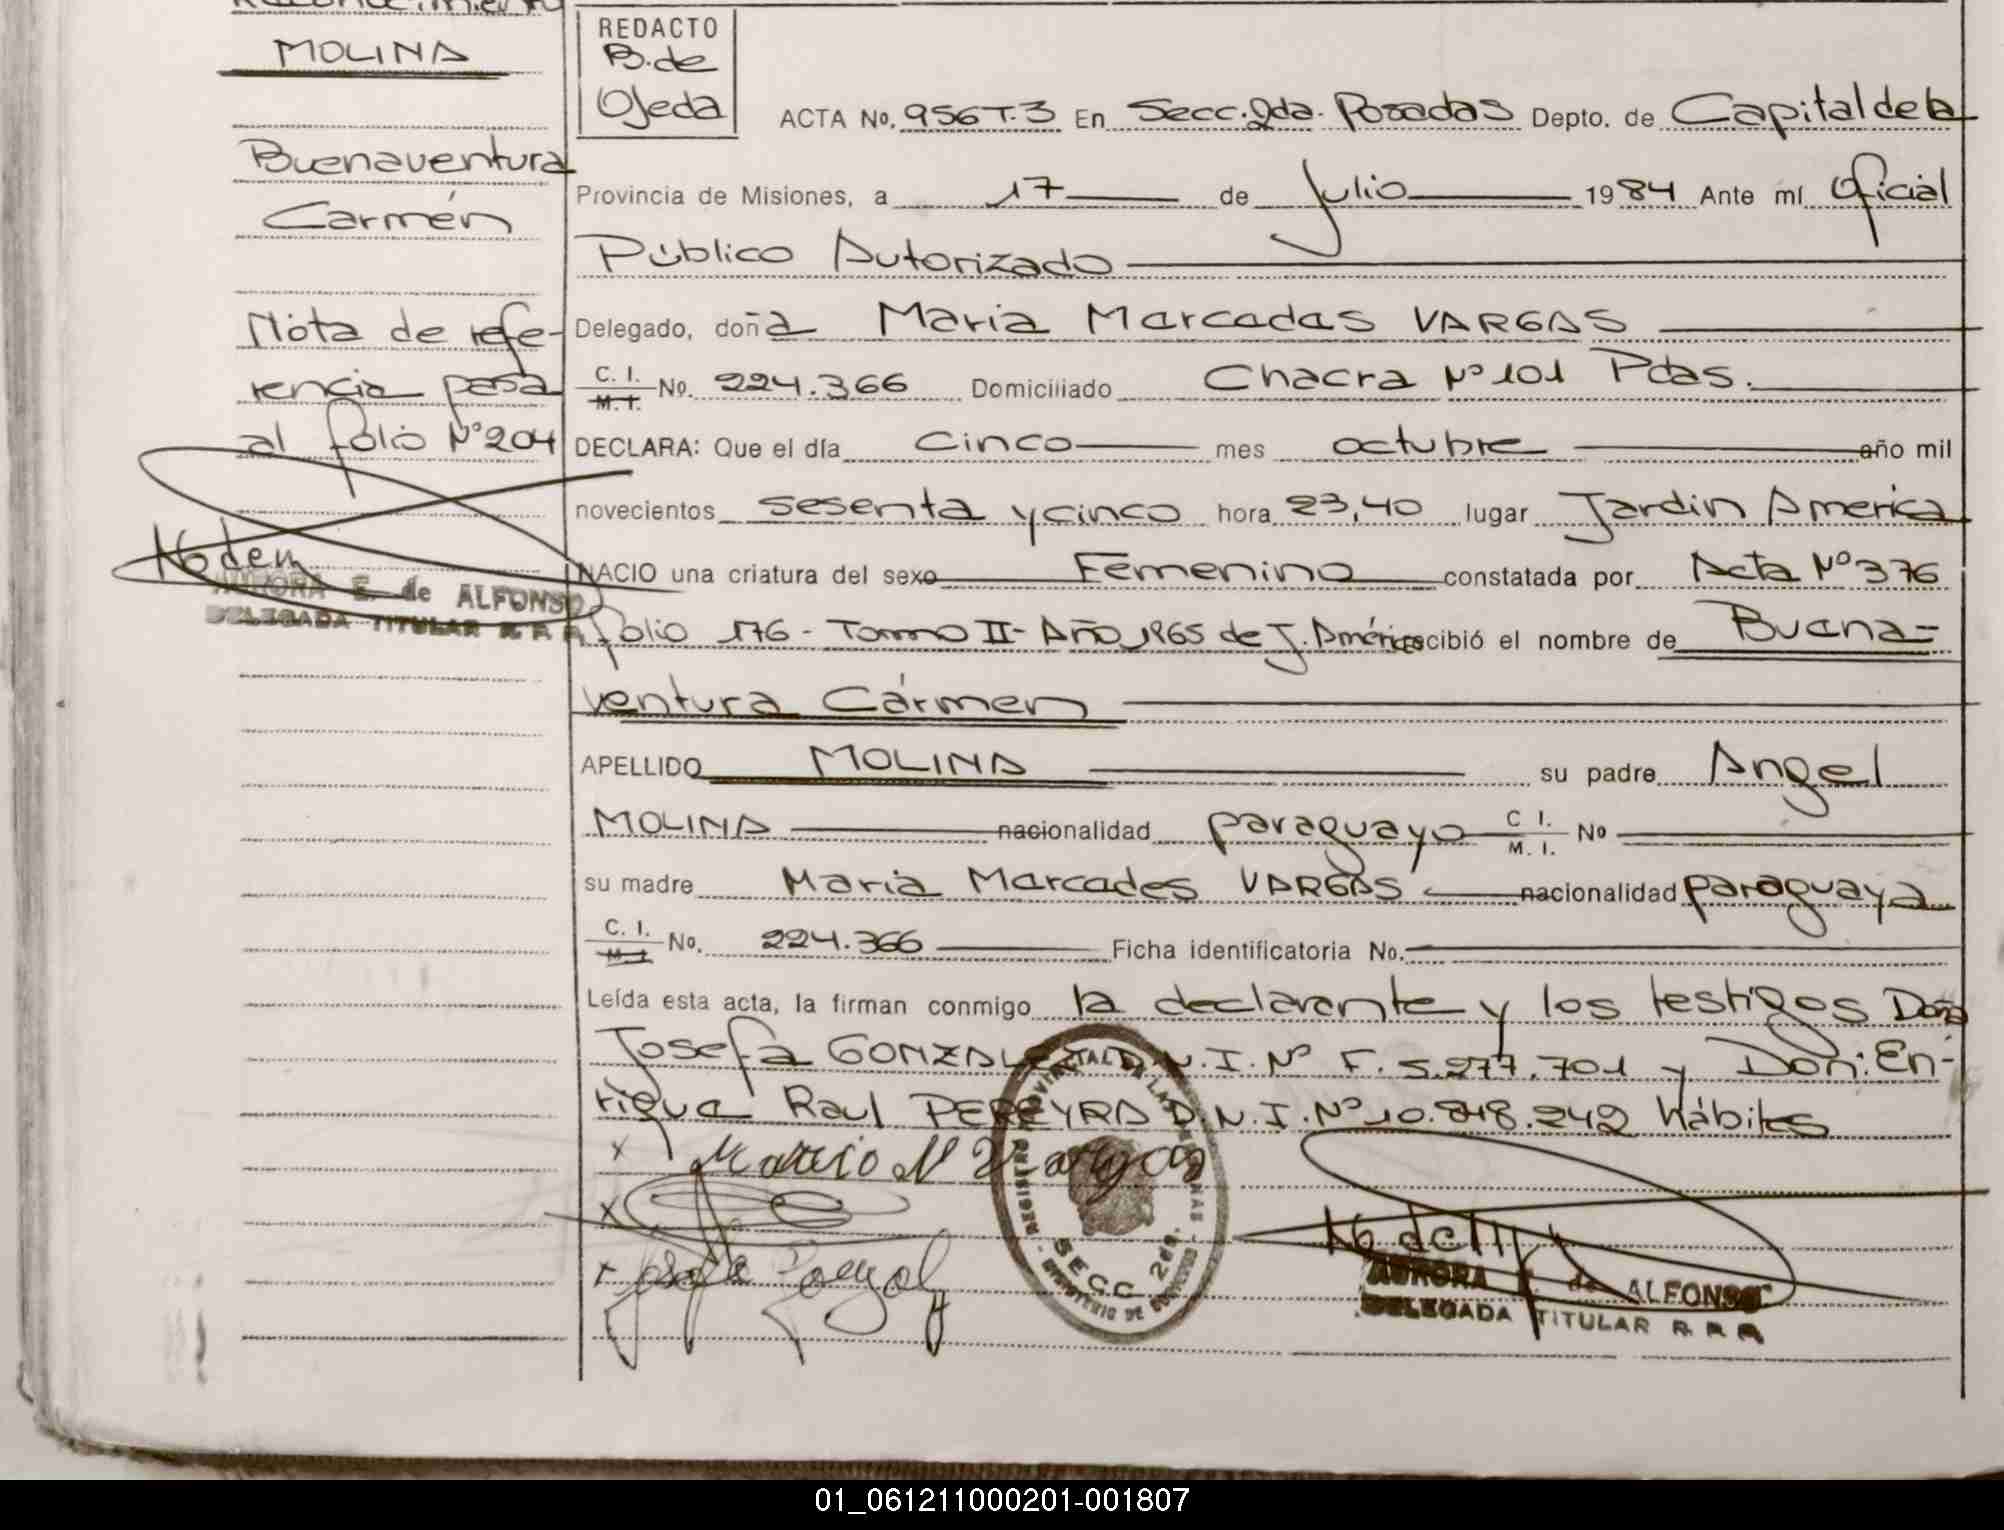 Reconocimiento
MOLINA
Buenaventura
Carmén
Nota de refe-
rencia pasa
al folio Nº 204
AURORA E. de ALFONSO
DELEGADA TITULAR R P P
REDACTO
B. de
Ojeda
ACTA No. 956 T.3 En Secc. 2da. Posadas Depto. de Capital de la
Provincia de Misiones, a 17 de Julio 1984 Ante mí Oficial
Público Autorizado
Delegado, doña Maria Marcadas VARGAS
C. I. M. I. No. 224.366 Domiciliado Chacra Nº 101 Pdas.
DECLARA: Que el día cinco mes octubre año mil
novecientos sesenta y cinco hora 23,40 lugar Jardin America
NACIO una criatura del sexo Femenino constatada por Acta Nº 376
folio 176 - Tomo II - Año 1965 de J. América recibió el nombre de Buena-
ventura Cármen
APELLIDO MOLINA su padre Angel
MOLINA nacionalidad paraguayo C I. M. I. No
su madre Maria Marcades VARGAS nacionalidad paraguaya
C. I. M. I. No. 224.366 Ficha identificatoria No.
Leída esta acta, la firman conmigo la declarante y los testigos Doña
Josefa GONZALEZ D.N.I. Nº F. 5.277.701 y Don: En-
rique Raul PEREYRA D.N.I. Nº 10.848.242 hábiles
SECC 2da.
AURORA E. de ALFONSO
DELEGADA TITULAR R P P
01_061211000201-001807